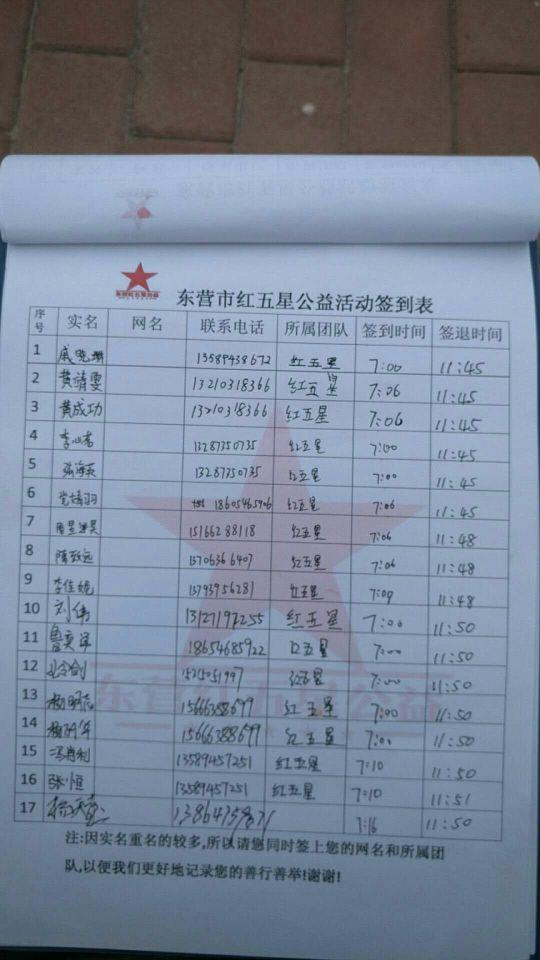 东营红五星公益
东营市红五星公益活动签到表
序号 实名 网名 联系电话 所属团队 签到时间 签退时间
1 戚晓琳 13589438672 红五星 7:00 11:45
2 黄靖雯 13210318366 红五星 7:06 11:45
3 黄成功 13210318366 红五星 7:06 11:45
4 13287350735 红五星 7:00 11:45
5 张海英 13287350735 红五星 7:00 11:45
6 18605465706 红五星 7:06 11:45
7 15166288118 红五星 7:06 11:48
8 隋致远 13706366407 红五星 7:06 11:48
9 李佳妮 13793956281 红五星 7:09 11:48
10 刘伟 13127197255 红五星 7:00 11:50
11 18654685922 红五星 7:00 11:50
12 红五星 7:00 11:50
13 15666388699 红五星 7:00 11:50
14 15666388699 红五星 7:00 11:50
15 13589457251 红五星 7:10 11:50
16 张恒 13589457251 红五星 7:10 11:51
17 7:16 11:50
东营红五星公益
注:因实名重名的较多,所以请您同时签上您的网名和所属团
队,以便我们更好地记录您的善行善举!谢谢!